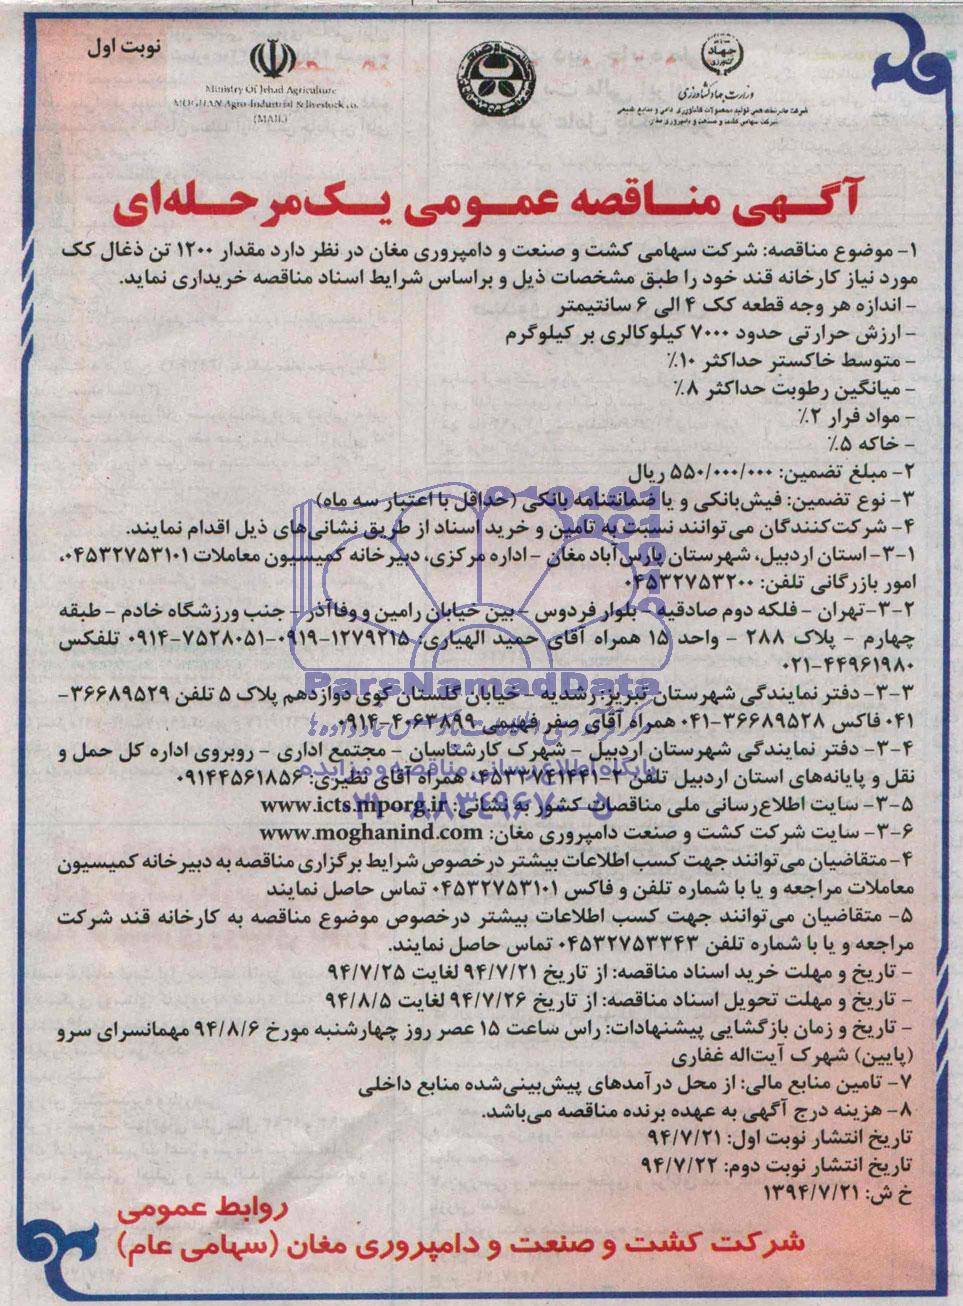 نوبت اول
Ministry Of Jehad Agriculture
MOGHAN Agro-Industrial & livestock co.
(MAIL)
جهاد
وزارت جهاد کشاورزی
شرکت مادر تخصصی تولید محصولات کشاورزی دامی و منابع طبیعی
شرکت سهامی کشت و صنعت و دامپروری مغان
آگهی مناقصه عمومی یک‌مرحله‌ای
۱- موضوع مناقصه: شرکت سهامی کشت و صنعت و دامپروری مغان در نظر دارد مقدار ۱۲۰۰ تن ذغال کک
مورد نیاز کارخانه قند خود را طبق مشخصات ذیل و براساس شرایط اسناد مناقصه خریداری نماید.
- اندازه هر وجه قطعه کک ۴ الی ۶ سانتیمتر
- ارزش حرارتی حدود ۷۰۰۰ کیلوکالری بر کیلوگرم
- متوسط خاکستر حداکثر ۱۰٪
- میانگین رطوبت حداکثر ۸٪
- مواد فرار ۲٪
- خاکه ۵٪
۲- مبلغ تضمین: ۵۵۰/۰۰۰/۰۰۰ ریال
۳- نوع تضمین: فیش‌بانکی و یا ضمانتنامه بانکی (حداقل با اعتبار سه ماه)
۴- شرکت‌کنندگان می‌توانند نسبت به تامین و خرید اسناد از طریق نشانی‌های ذیل اقدام نمایند.
۳-۱- استان اردبیل، شهرستان پارس‌آباد مغان - اداره مرکزی، دبیرخانه کمیسیون معاملات ۰۴۵۳۲۷۵۳۱۰۱،
امور بازرگانی تلفن: ۰۴۵۳۲۷۵۳۲۰۰
۳-۲-تهران - فلکه دوم صادقیه - بلوار فردوس - بین خیابان رامین و وفاآذر - جنب ورزشگاه خادم - طبقه
چهارم - پلاک ۲۸۸ - واحد ۱۵ همراه آقای حمید الهیاری: ۱۲۷۹۲۱۵-۰۹۱۹-۷۵۲۸۰۵۱-۰۹۱۴ تلفکس
۰۲۱-۴۴۹۶۱۹۸۰
۳-۳- دفتر نمایندگی شهرستان تبریز: رشدیه - خیابان گلستان کوی دوازدهم پلاک ۵ تلفن ۳۶۶۸۹۵۲۹-
۰۴۱ فاکس ۳۶۶۸۹۵۲۸-۰۴۱ همراه آقای صفر فهیمی ۴۰۶۳۸۹۹-۰۹۱۴
۳-۴- دفتر نمایندگی شهرستان اردبیل - شهرک کارشناسان - مجتمع اداری - روبروی اداره کل حمل و
نقل و پایانه‌های استان اردبیل تلفن ۲-۰۴۵۳۳۷۴۱۴۴۱ همراه آقای نظیری: ۰۹۱۴۴۵۶۱۸۵۶
۳-۵- سایت اطلاع‌رسانی ملی مناقصات کشور به نشانی: www.icts.mporg.ir
۳-۶- سایت شرکت کشت و صنعت دامپروری مغان: www.moghanind.com
۴- متقاضیان می‌توانند جهت کسب اطلاعات بیشتر درخصوص شرایط برگزاری مناقصه به دبیرخانه کمیسیون
معاملات مراجعه و یا با شماره تلفن و فاکس ۰۴۵۳۲۷۵۳۱۰۱ تماس حاصل نمایند
۵- متقاضیان می‌توانند جهت کسب اطلاعات بیشتر درخصوص موضوع مناقصه به کارخانه قند شرکت
مراجعه و یا با شماره تلفن ۰۴۵۳۲۷۵۳۳۴۳ تماس حاصل نمایند.
- تاریخ و مهلت خرید اسناد مناقصه: از تاریخ ۹۴/۷/۲۱ لغایت ۹۴/۷/۲۵
- تاریخ و مهلت تحویل اسناد مناقصه: از تاریخ ۹۴/۷/۲۶ لغایت ۹۴/۸/۵
- تاریخ و زمان بازگشایی پیشنهادات: راس ساعت ۱۵ عصر روز چهارشنبه مورخ ۹۴/۸/۶ مهمانسرای سرو
(پایین) شهرک آیت‌اله غفاری
۷- تامین منابع مالی: از محل درآمدهای پیش‌بینی‌شده منابع داخلی
۸- هزینه درج آگهی به عهده برنده مناقصه می‌باشد.
تاریخ انتشار نوبت اول: ۹۴/۷/۲۱
تاریخ انتشار نوبت دوم: ۹۴/۷/۲۲
خ ش: ۱۳۹۴/۷/۲۱
روابط عمومی
شرکت کشت و صنعت و دامپروری مغان (سهامی عام)
ParsNamadData
پایگاه اطلاع رسانی مناقصه و مزایده
۰۲۱-۸۸۳۴۹۶۷۰-۵